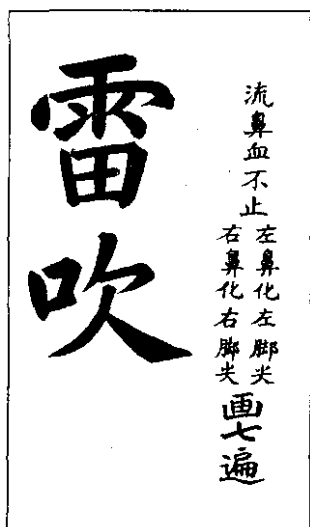 流鼻血不止
左鼻化左脚尖
右鼻化右脚尖
画七遍
雷吹